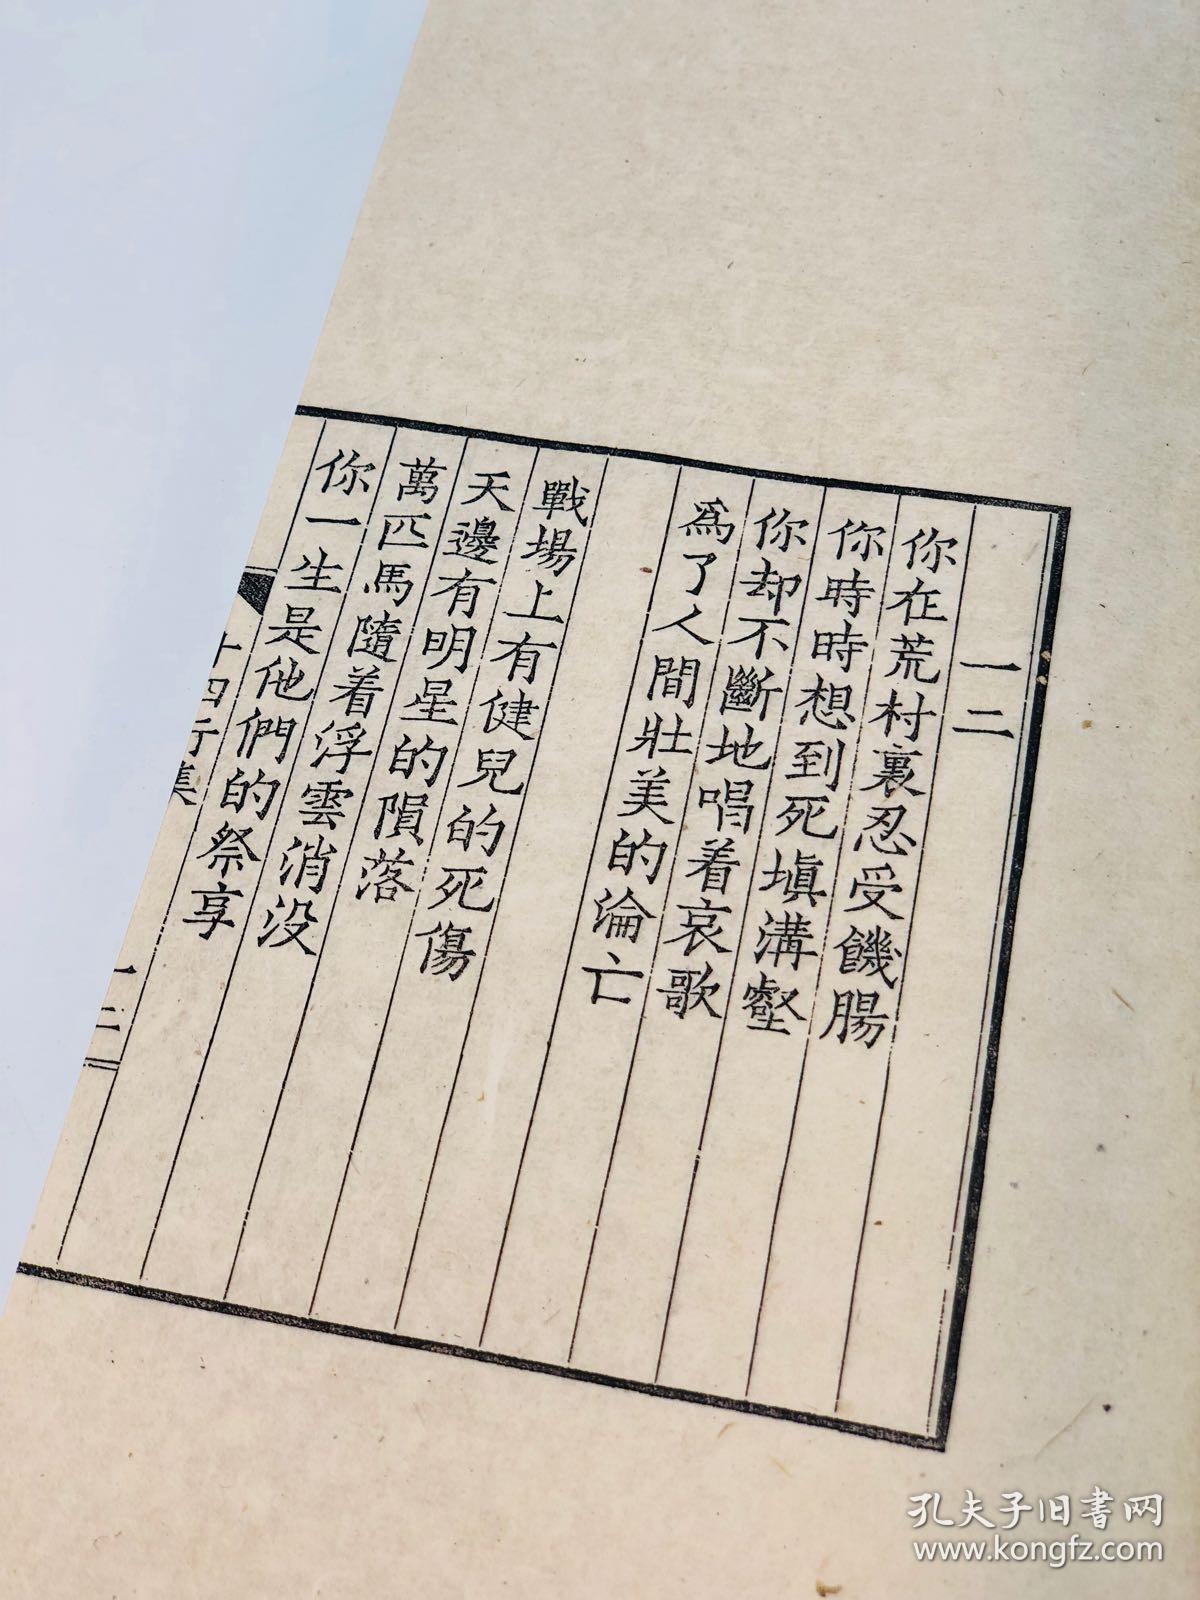 一二
你在荒村裏忍受饑腸
你時時想到死填溝壑
你却不斷地唱着哀歌
爲了人間壯美的淪亡
戰場上有健兒的死傷
天邊有明星的隕落
萬匹馬隨着浮雲消没
你一生是他們的祭享
十四行集
一二
孔夫子旧書网
www.kongfz.com